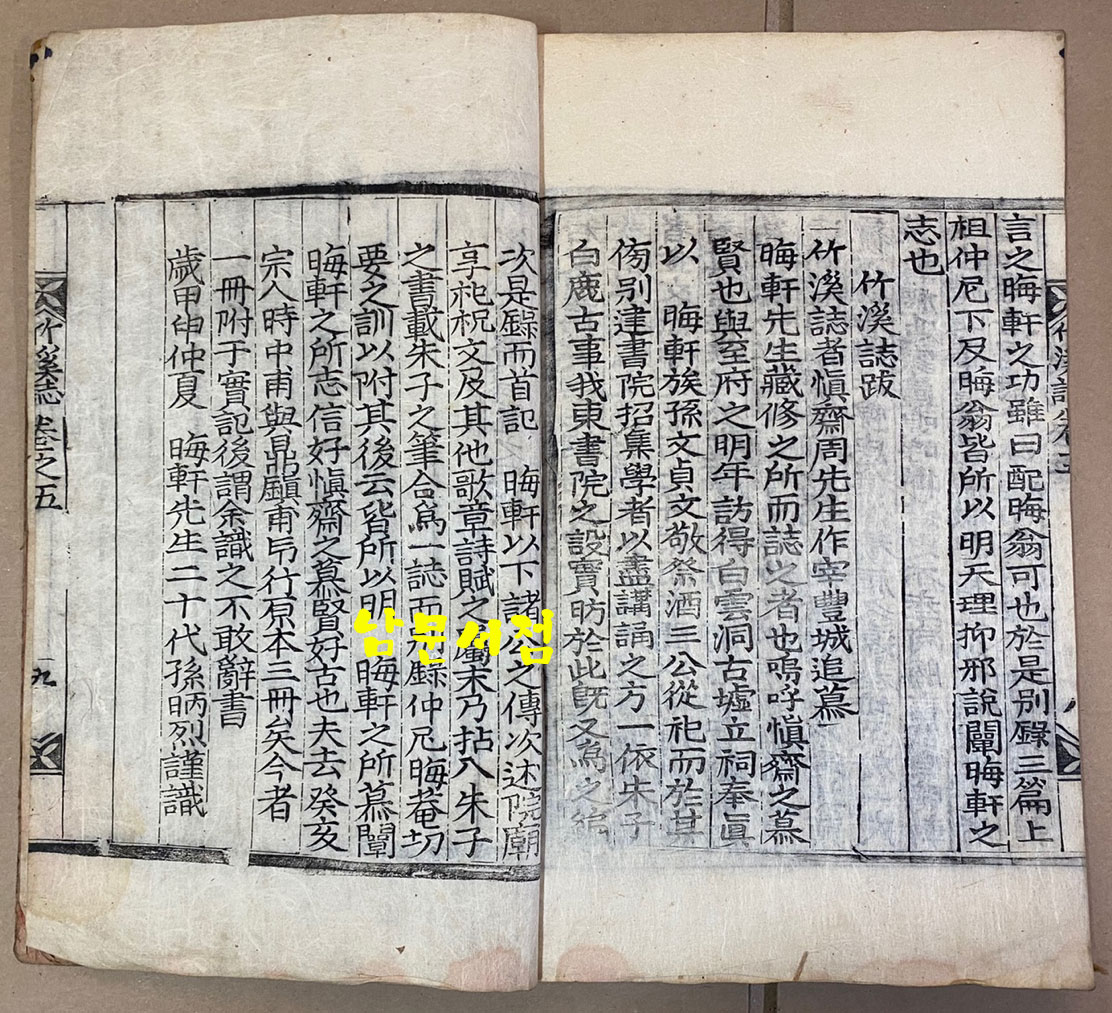 言之晦軒之功雖曰配晦翁可也於是別錄三篇上
祖仲尼下及晦翁皆所以明天理抑邪說闡晦軒之
志也
竹溪誌跋
竹溪誌者愼齋周先生作宰豐城追慕
晦軒先生藏修之所而誌之者也嗚呼愼齋之慕
賢也與至府之明年訪得白雲洞古墟立祠奉眞
以 晦軒族孫文貞文敬祭酒三公從祀而於其
傍別建書院招集學者以盡講誦之方一依朱子
白鹿古事我東書院之設實昉於此旣又爲之編
次是錄而首記 晦軒以下諸公之傳次述院廟
享祀祝文及其他歌章詩賦之屬末乃拈入朱子
之書載朱子之筆合爲一誌而別錄仲尼晦菴切
要之訓以附其後云皆所以明 晦軒之所慕闡
晦軒之所志信好愼齋之慕賢好古也夫去癸亥
宗人時中甫與鼎鎭甫另行原本三冊矣今者
一冊附于實記後謂余識之不敢辭書
歲甲申仲夏 晦軒先生二十代孫昞烈謹識
竹溪志 卷之五
九
竹溪誌卷之五
八
남문서점